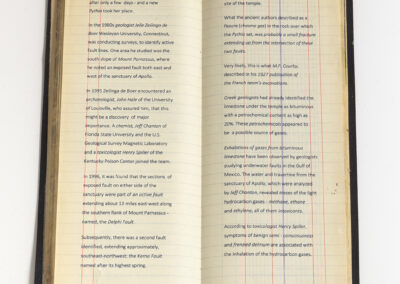 after only a few days - and a new
Pythia took her place.
In the 1980s geologist Jelle Zeilinga de
Boer Wesleyan University, Connecticut,
was conducting surveys, to identify active
fault lines. One area he studied was the
south slope of Mount Parnassus, where
he noted an exposed fault both east and
west of the sanctuary of Apollo.
In 1995 Zeilinga de Boer encountered an
archaeologist, John Hale of the University
of Louisville, who assured him, that this
might be a discovery of major
importance. A chemist, Jeff Chanton of
Florida State University and the U.S.
Geological Survey Magnetic Laboratory
and a toxicologist Henry Spiller of the
Kentucky Poison Center joined the team.
In 1996, it was found that the sections of
exposed fault on either side of the
sanctuary were part of an active fault
extending about 13 miles east-west along
the southern bank of Mount Parnassus -
named, the Delphi Fault.
Subsequently, there was a second fault
identified, extending approximately,
southeast-northwest; the Kerna Fault
named after its highest spring.
site of the temple.
What the ancient authors described as a
fissure (chroma ges) in the rock over which
the Pythia sat, was probably a small fracture
extending up from the intersection of these
two faults.
Very likely, this is what M.F. Courby,
described in his 1927 publication of
the French team's excavations.
Greek geologists had already identified the
limestone under the temple as bituminous
with a petrochemical content as high as
20%. These petrochemicals appeared to
be a possible source of gases.
Exhalations of gases from bituminous
limestone have been observed by geologists
studying underwater faults in the Gulf of
Mexico. The water and travertine from the
sanctuary of Apollo, which were analyzed
by Jeff Chanton, revealed traces of the light
hydrocarbon gases - methane, ethane
and ethylene, all of them intoxicants.
According to toxicologist Henry Spiller,
symptoms of benign semi - consciousness
and frenzied delirium are associated with
the inhalation of the hydrocarbon gases.